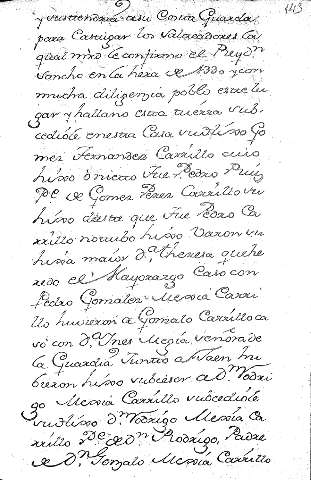 113
y sustentaria a su Costa Guarda
para Castigar los salteadores la
qual mrd le confirmo el Rey Dn
Sancho en la hera de 1330 y con
mucha diligençia poblo este lu
gar y hallano esta tierra sub
cedióle en esta Casa su hixo Go
mez Fernandez Carrillo cuio
hixo ó nieto Fue Pedro Ruiz
Pe de Gomez Perez Carrillo su
hixo deste que Fue Pedro Ca
rrillo no tubo hixo Varon su
hixa maior Da theresa que he
redo el Mayorazgo Caso con
Pedro Gonzalez Mexia Carri
llo huvieron a Gonzalo Carrillo ca
só con Da Ynes Megia, señora de
la Guardia Junto a Jaen hu
bieron hixo subcesor a Dn Rodri
go Mexia Carrillo subcedióle
su hixo Dn Rodrigo Mexia Ca
rrillo Pe de Dn Rodrigo, Padre
de Dn Gonzalo Mexia Carrillo